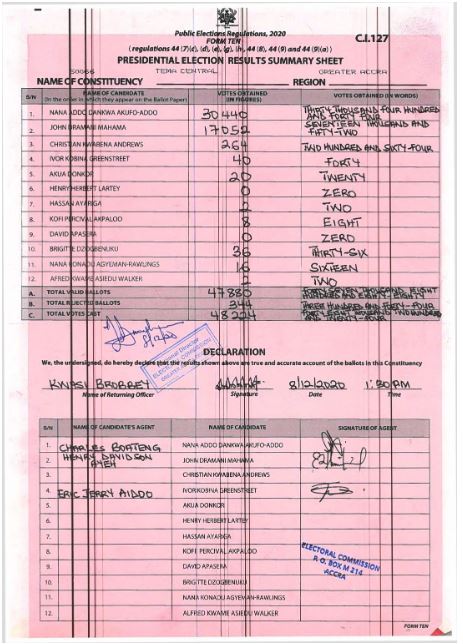 Public Elections Regulations, 2020
FORM TEN
C.I.127
( regulations 44 (7)(c), (d), (e), (g), (h), 44 (8), 44 (9) and 44 (9)(a) )
PRESIDENTIAL ELECTION RESULTS SUMMARY SHEET
50066 TEMA CENTRAL GREATER ACCRA
NAME OF CONSTITUENCY REGION
S/N NAME OF CANDIDATE (In the order in which they appear on the Ballot Paper) VOTES OBTAINED (IN FIGURES) VOTES OBTAINED (IN WORDS)
1. NANA ADDO DANKWA AKUFO-ADDO 30440 THIRTY THOUSAND FOUR HUNDRED AND FORTY FOUR
2. JOHN DRAMANI MAHAMA 17052 SEVENTEEN THOUSAND AND FIFTY-TWO
3. CHRISTIAN KWABENA ANDREWS 264 TWO HUNDRED AND SIXTY-FOUR
4. IVOR KOBINA GREENSTREET 40 FORTY
5. AKUA DONKOR 20 TWENTY
6. HENRY HERBERT LARTEY 0 ZERO
7. HASSAN AYARIGA 2 TWO
8. KOFI PERCIVAL AKPALOO 8 EIGHT
9. DAVID APASERA 0 ZERO
10. BRIGITTE DZOGBENUKU 36 THIRTY-SIX
11. NANA KONADU AGYEMAN-RAWLINGS 16 SIXTEEN
12. ALFRED KWAME ASIEDU WALKER 2 TWO
A. TOTAL VALID BALLOTS 47880 FORTY SEVEN THOUSAND EIGHT HUNDRED AND EIGHTY-EIGHTY
B. TOTAL REJECTED BALLOTS 344 THREE HUNDRED AND FORTY-FOUR
C. TOTAL VOTES CAST 48224 FORTY EIGHT THOUSAND TWO HUNDRED AND TWENTY-FOUR
8/12/20
Electoral Director
ELECTORAL COMMISSION
GREATER ACCRA
DECLARATION
We, the undersigned, do hereby declare that the results shown above are true and accurate account of the ballots in this Constituency
KWASI BROBBEY 8/12/2020 1:30PM
Name of Returning Officer Signature Date Time
S/N NAME OF CANDIDATE'S AGENT NAME OF CANDIDATE SIGNATURE OF AGENT
1. CHARLES BOATENG NANA ADDO DANKWA AKUFO-ADDO
2. HENRY DAVIDSON AYEH JOHN DRAMANI MAHAMA
3. CHRISTIAN KWABENA ANDREWS
4. ERIC JERRY AIDOO IVOR KOBINA GREENSTREET
5. AKUA DONKOR
6. HENRY HERBERT LARTEY
7. HASSAN AYARIGA
8. KOFI PERCIVAL AKPALOO
9. DAVID APASERA
10. BRIGITTE DZOGBENUKU
11. NANA KONADU AGYEMAN-RAWLINGS
12. ALFRED KWAME ASIEDU WALKER
ELECTORAL COMMISSION
P. O. BOX M 214
ACCRA
FORM TEN